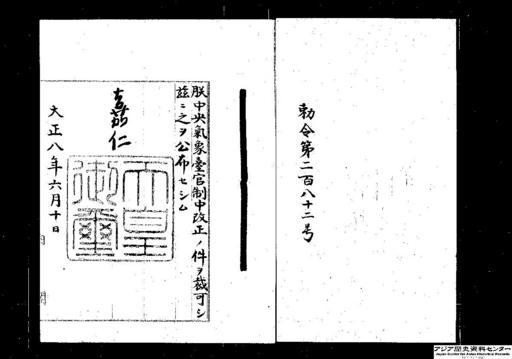 勅令第二百八十二号
朕中央氣象臺官制中改正ノ件ヲ裁可シ
茲ニ之ヲ公布セシム
嘉仁
天皇
御璽
大正八年六月十日
アジア歴史資料センター
Japan Center for Asian Historical Records